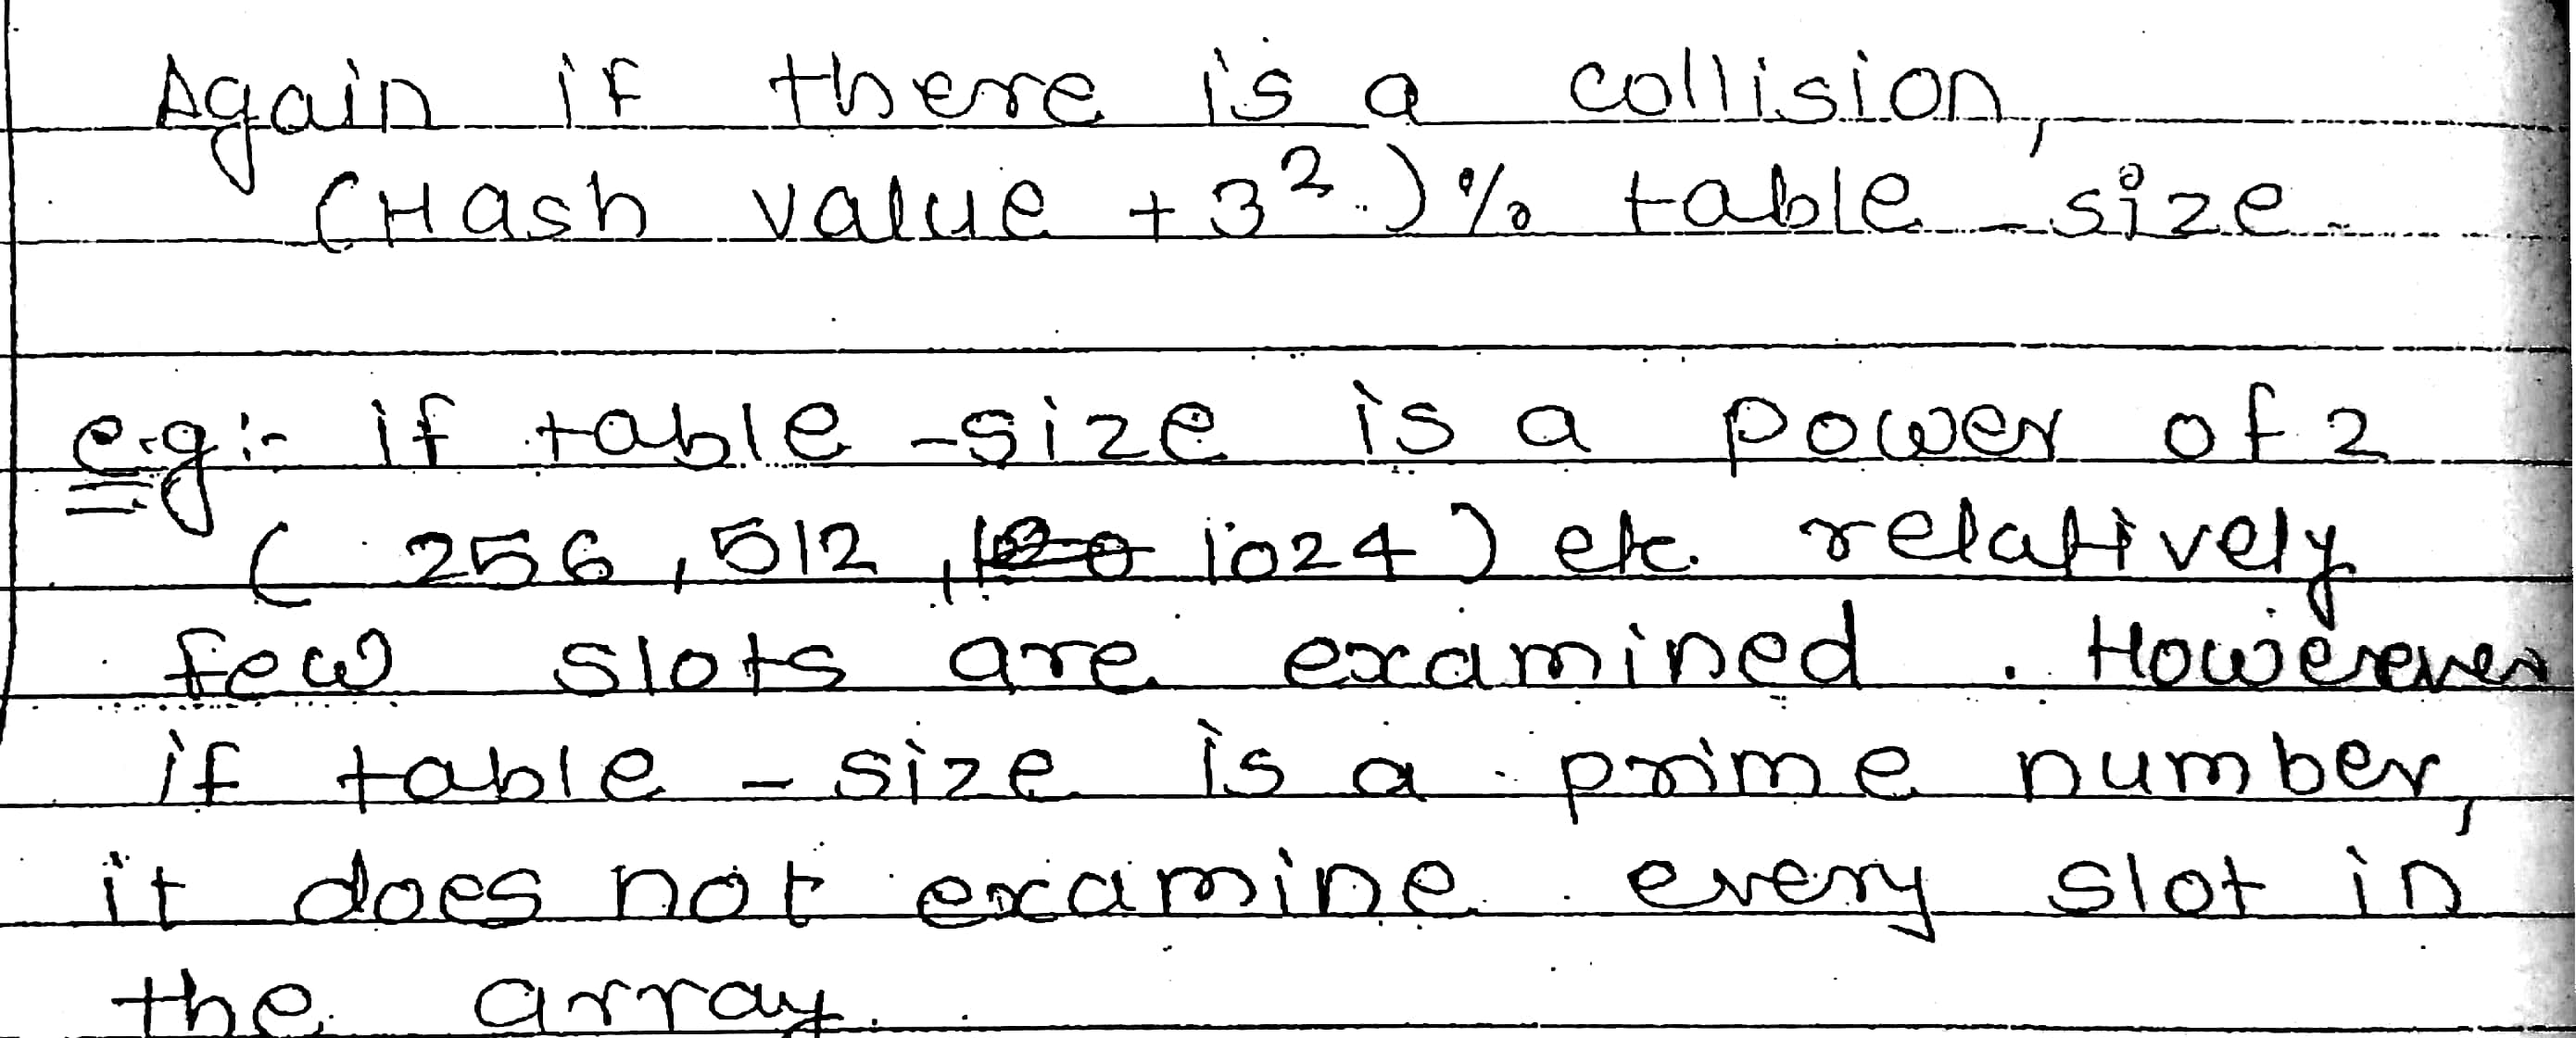 Again if there is a collision,
(Hash value + 3²) % table_size.
e.g:- if table-size is a power of 2
(256, 512, 1024) etc. relatively
few slots are examined. Howerever
if table-size is a prime number,
it does not examine every slot in
the array.